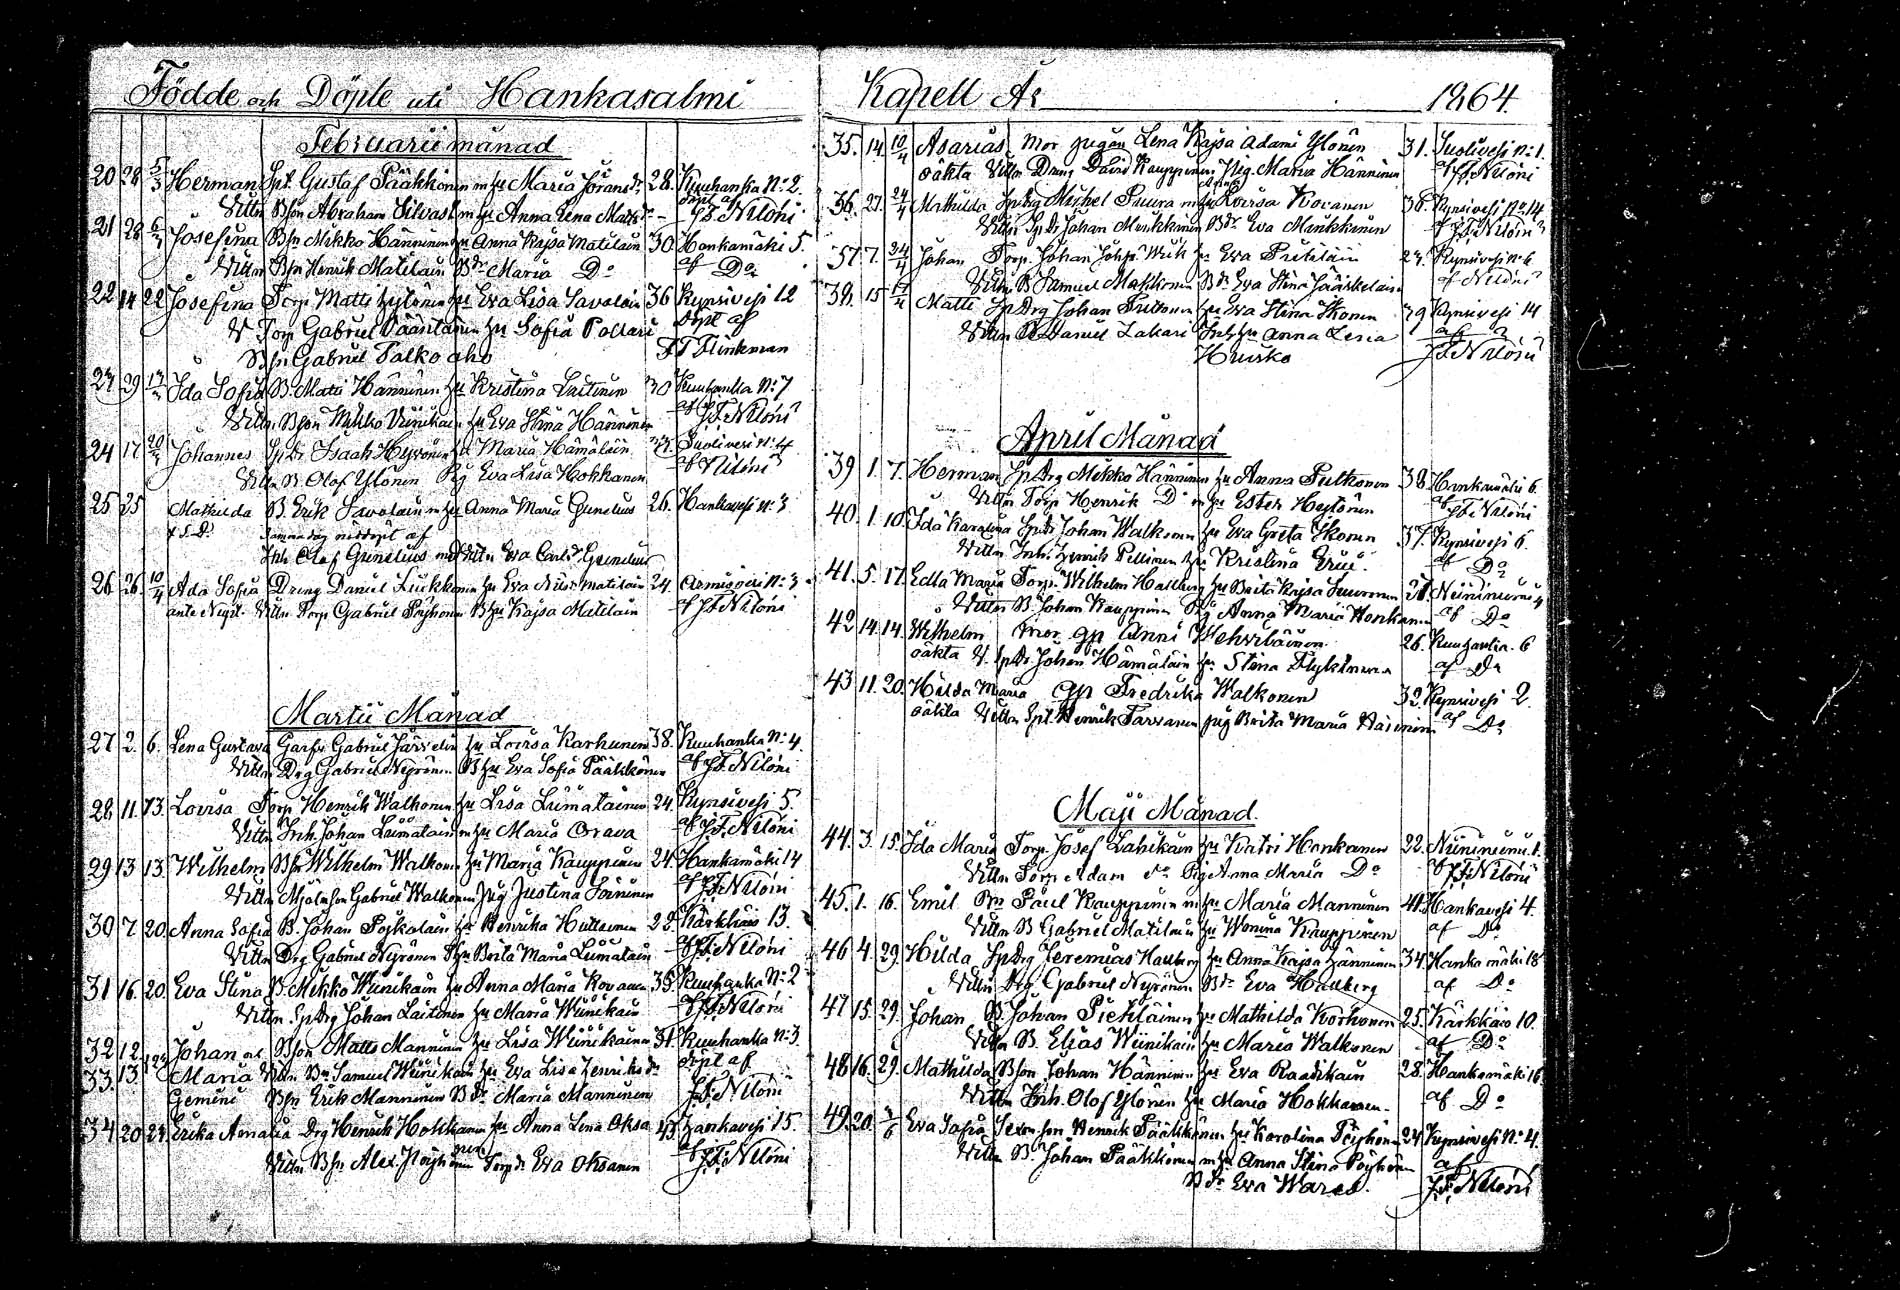 Födde och Döpte uti Hankasalmi
Februarii månad
20 28 5/3 Herman Spt. Gustaf Pääkkönen m hu Maria Göransdr. 28. Kuuhanka No: 2.
Vittn Bson Abraham Silvast m hu Anna Lena Mattsdr döpt af J.F. Niloni
21 28 6/3 Josefina Bsn Mikko Hänninen hu Anna Kajsa Matilain 30. Hankamäki 5.
Vittn Bsn Henrik Matilain Bdr Maria Do af Do
22 14 22 Josefina Torp Matti Hytönen hu Eva Lisa Savolain 36 Kynsivesi 12
V Torp Gabriel hu Sofia Pollari Döpt af
Bsn Gabriel Palkoaho F T Flinkman
23 29 13/3 Ida Sofia B. Matti Hänninen hu Kristina Laitinen 30 Kuuhanka No: 7
Vittn. Bson Mikko Wiinikain hu Eva Stina Hänninen af J.F. Niloni
24 17 20/3 Johannes Isaak Hyvönen hu Maria Hämäläin 27. Suolivesi No: 4
Vittn B. Olof Ylönen Pig Eva Lisa Hokkanen af Niloni
25 25 Mathilda B. Erik Savolain m hu Anna Maria Gunelius 26. Hankavesi No: 3
samma dag nöddöpt af
Inh Olof Gunelius med Vittn Eva Carlsdr Gunelius
26 26 10/4 Ada Sofia Dreng Daniel Liukkonen hu Eva Matilain 24. Armisveri No: 3
ante Nupt. Vittn Torp Gabriel Pöyhönen B hu Kajsa Matilain af J.F. Niloni
Martii Månad
27 2. 6. Lena Gustava Garfv Gabriel Järvelin hu Lovisa Karhunen 38. Kuuhanka No: 4.
Vittn Drg Gabriel Nyrönen B hu Eva Sofia Pääkkönen af J.F. Niloni
28 11. 13. Lovisa Torp Henrik Walkonen hu Lisa Liimatainen 24. Kynsivesi 5.
Vittn Inh. Johan Liimatain m hu Maria Orava af J.F. Niloni
29 13 13. Wilhelm Bsn Wilhelm Walkonen hu Maria Kauppinen 24. Hankamäki 14
Vittn Mjölnson Gabriel Walkonen pig Justina Soininen af J.F. Niloni
30 7 20. Anna Sofia B. Johan Pojkolain hu Henrika Huttunen 22. Kärkkäis 13.
Vittn Drg Gabriel Nyrönen B hu Brita Maria Liimatain af J.F. Niloni
31 16. 20. Eva Stina B. Mikko Wiinikain hu Anna Maria Kovanen 35. Kuuhanka No: 2
Vittn Sp Drg Johan Laitinen hu Maria Wiinikain af J.F. Niloni
32 12. Johan och Bson Matts Manninen hu Lisa Wiinikainen 31. Kuuhanka No: 3
33. 13. Maria Vittn Bn Samuel Wiinikain hu Eva Lisa Henriksdr döpt af
Gemini Bsn Erik Manninen Bdr Maria Manninen J.F. Niloni
34 20 24 Erika Amalia Drg Henrik Hokkanen hu Anna Lena Oksa 43. Hankavesi 15.
Vittn Bsn Alex. Pöyhönen Torpdr Eva Oksanen af J.F. Niloni
Kapell År 1864.
35. 14. 10/4 Asarias Mor pigan Lena Kajsa Adami Ylönen 31. Suolivesi No: 1.
oäkta Vittn Dreng David Kauppinen Pig. Maria Hänninen af J.F. Niloni
36. 27. 24/4 Mathilda Sp Drg Mickel Puura m hu Anna Lovisa Kovanen 38. Kynsivesi No: 14
Vittn Sp Dr Johan Munkkinen Bdr Eva Munkkinen af J.F. Niloni
37 7. 24/4 Johan Torp. Johan Johsn Wuk hu Eva 27. Kynsivesi No 6
Vittn B Samuel Makkonen Bdr Eva Stina Jääskeläin af Niloni
38. 15 17/4 Matti Sp Drg Johan Pulkonen hu Eva Stina Ikonen 39 Kynsivesi 14
Vittn B Daniel Lakari Inh hu Anna Lena af
Hrusko J.F. Niloni
April Månad
39 1. 7. Herman Sp Drg Mikko Hänninen hu Anna Pulkonen 38 Hankamäki 6.
Vittn Torp Henrik Do m hu Ester Hytönen af J.F. Niloni
40. 1. 10. Ida Karolina Sp Dr Johan Walkonen hu Eva Greta Ikonen 37. Kynsivesi 6.
Vittn Inh. Henrik Pellinen hu Kristina af Do
41. 5. 17. Edla Maria Torp. Wilhelm Hallberg hu Brita Kajsa Suuronen 31. Niininiemi 4
Vittn B. Johan Kauppinen Pig Anna Maria Honkanen af Do
42 14. 14. Wilhelm Mor gp Anni Wehviläinen 26. Kuuhanka. 6
oäkta V. Sp Dr Johan Hämäläin hu Stina Flyktman af Do
43 11. 20. Hilda Maria gp Fredrika Walkonen 32. Kynsivesi 2.
oäkta Vittn Spt. Henrik Tarvanen pig Brita Maria Häninen af Do
Maji Månad.
44. 3. 15. Ida Maria Torp. Josef Lahikain hu Katri Honkanen 22. Niininiemi. 1.
Vittn Torp Adam Do Pig Anna Maria Do af J.F. Niloni
45. 1. 16. Emil Bn Paul Kauppinen m hu Maria Manninen 41. Hankavesi 4.
Vittn B Gabriel Matilain hu Kauppinen af Do
46 4. 29. Hilda Sp Drg Jeremias Hallberg hu Anna Kajsa Hänninen 34. Hankamäki 18
Vittn Drg Gabriel Nyrönen Bdr Eva Hallberg af Do
47 15. 29. Johan B Johan Pieklainen hu Mathilda Korhonen 25. Kärkkäis 10.
Vittn B. Elias Wiinikain hu Maria Walkonen af Do
48 16. 29. Mathilda Bson Johan Hänninen hu Eva Raatikain 28. Hankamäki 16.
Vittn Inh. Olof Ylönen hu Maria Hokkanen. af Do
49. 20. 5/6 Eva Sofia Sexm. son Henrik Pääkkönen hu Karolina Pöyhönen 24 Kynsivesi No: 4.
Vittn B. Johan Pääkkönen m hu Anna Stina Pöyhönen af
Bdr Eva Wares. J.F. Niloni